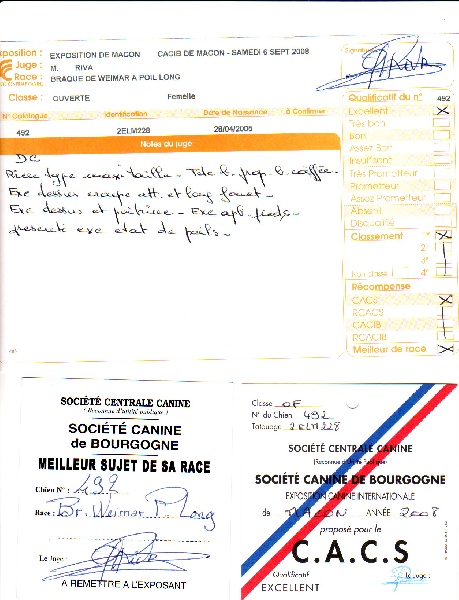 Exposition : EXPOSITION DE MACON CACIB DE MACON - SAMEDI 6 SEPT 2008
Juge : M. RIVA
Race : BRAQUE DE WEIMAR A POIL LONG
Classe : OUVERTE Femelle
Signature
N° Catalogue Identification Date de Naissance à Confirmer
492 2ELM228 28/04/2005
Notes du juge
Qualificatif du n° 492
Excellent X
Très bon
Bon
Assez Bon
Insuffisant
Très Prometteur
Prometteur
Assez Prometteur
Absent
Disqualifié
Classement 1er X
2e
3e
Non classé 4e
Récompense
CACS X
RCACS
CACIB
RCACIB
Meilleur de race X
type taille - Tête b. prop. b. coiffée -
Exc dessus croupe att. et long fouet -
Exc dessus et poitrine - Exc apl. pieds -
présenté exc état de poils -
SOCIÉTÉ CENTRALE CANINE
(Reconnue d'utilité publique)
SOCIÉTÉ CANINE
de BOURGOGNE
MEILLEUR SUJET DE SA RACE
Chien N° : 492
Race : Br. Weimar P. Long
Le Juge :
A REMETTRE A L'EXPOSANT
Classe OF
N° du Chien 492
Tatouage 2ELM228
SOCIÉTÉ CENTRALE CANINE
(Reconnue d'Utilité Publique)
SOCIÉTÉ CANINE DE BOURGOGNE
EXPOSITION CANINE INTERNATIONALE
de MACON ANNÉE 2008
proposé pour le
C.A.C.S
Qualificatif Le Juge :
EXCELLENT